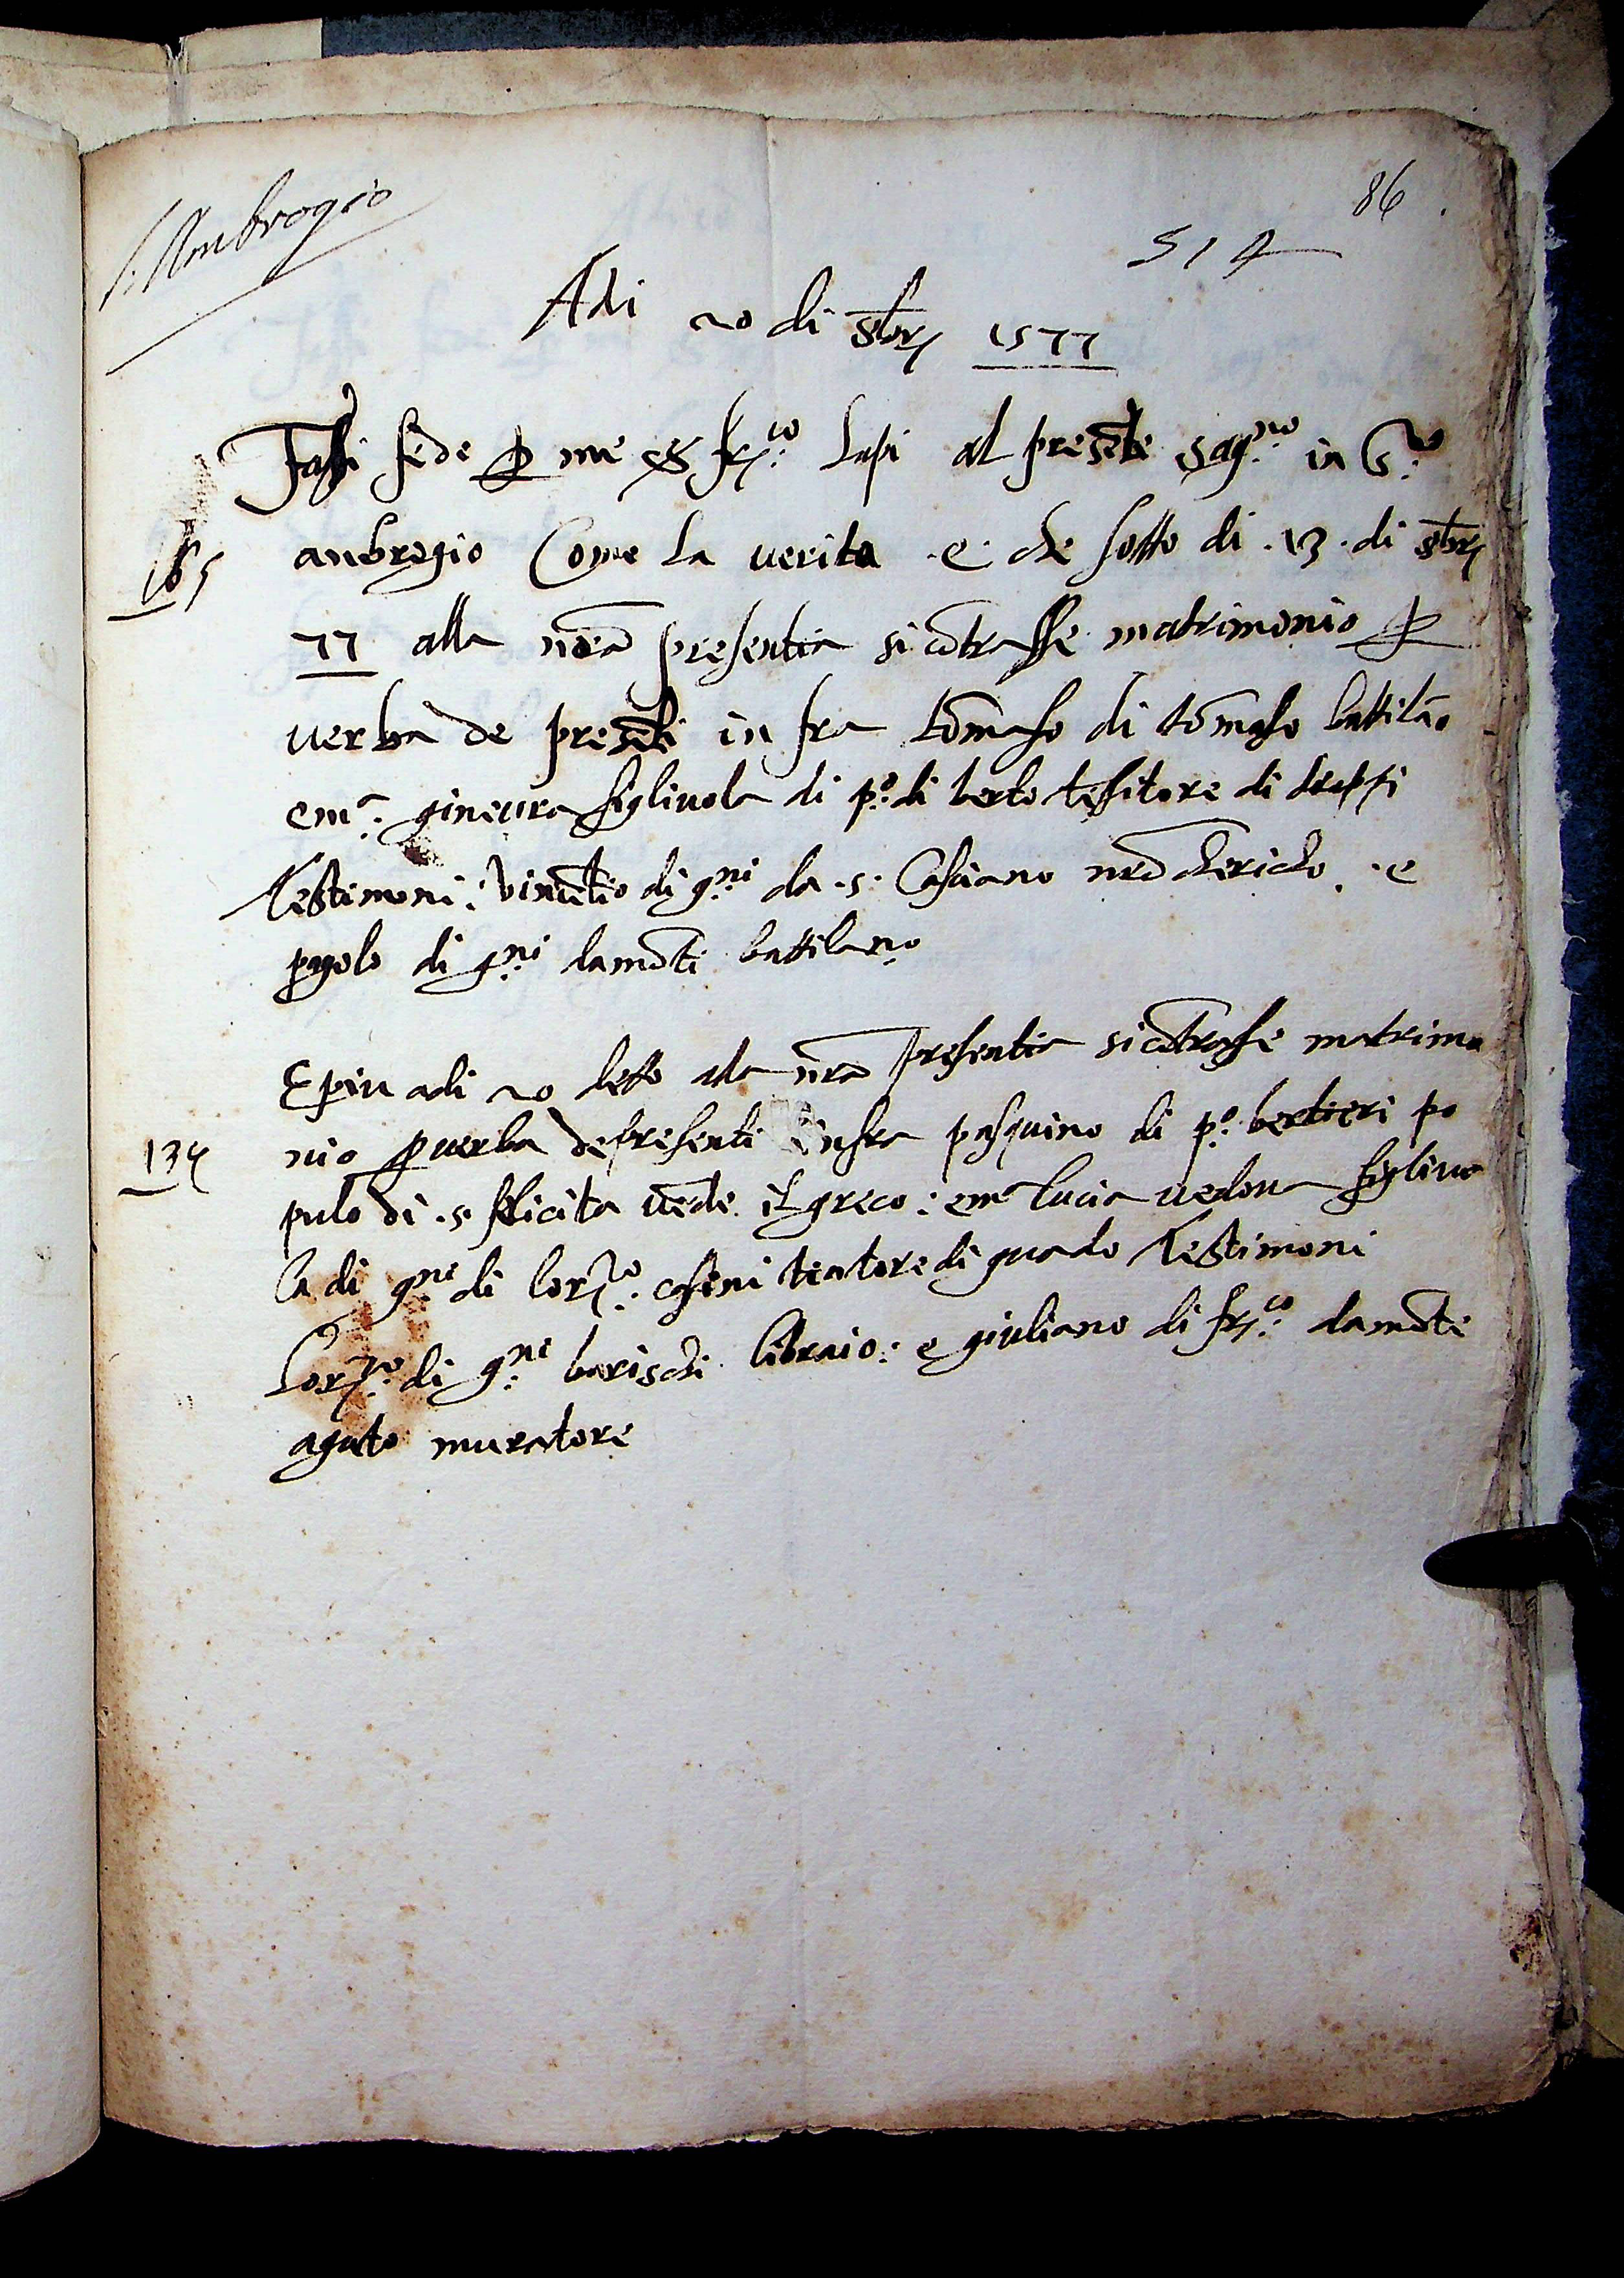 S. Ambrogio
86.
514
Adi 20 di 8bre 1577
Fassi fede p me ss frco Lapi al presēte sagno in Sto
165
anbrogio Come la verita e che sotto di .13. di 8bre
77 alla nrā presentia si cōtrasse matrimonio p
verba de presēti in fra tōmaso di tōmaso battilāo
e ma ginevra figlivola di po di berto tesitore di drappi
Testimoni: Vincētio di gni da .s. Casciano nrō chericho . e
pagolo di gni damōti battilano
E piu adi 20 detto ala nrā presentia si cōtrasse matrimo
134
nio p verba de presenti infra pasquino di po bertieri po
pulo di .s. felicita vēde il greco: e ma lucia vedova figliuo
la di gni di lorzo casini tintore di guado Testimoni
Lorzo di gni barischi libraio: e giuliano di frco damōte
aguto muratore